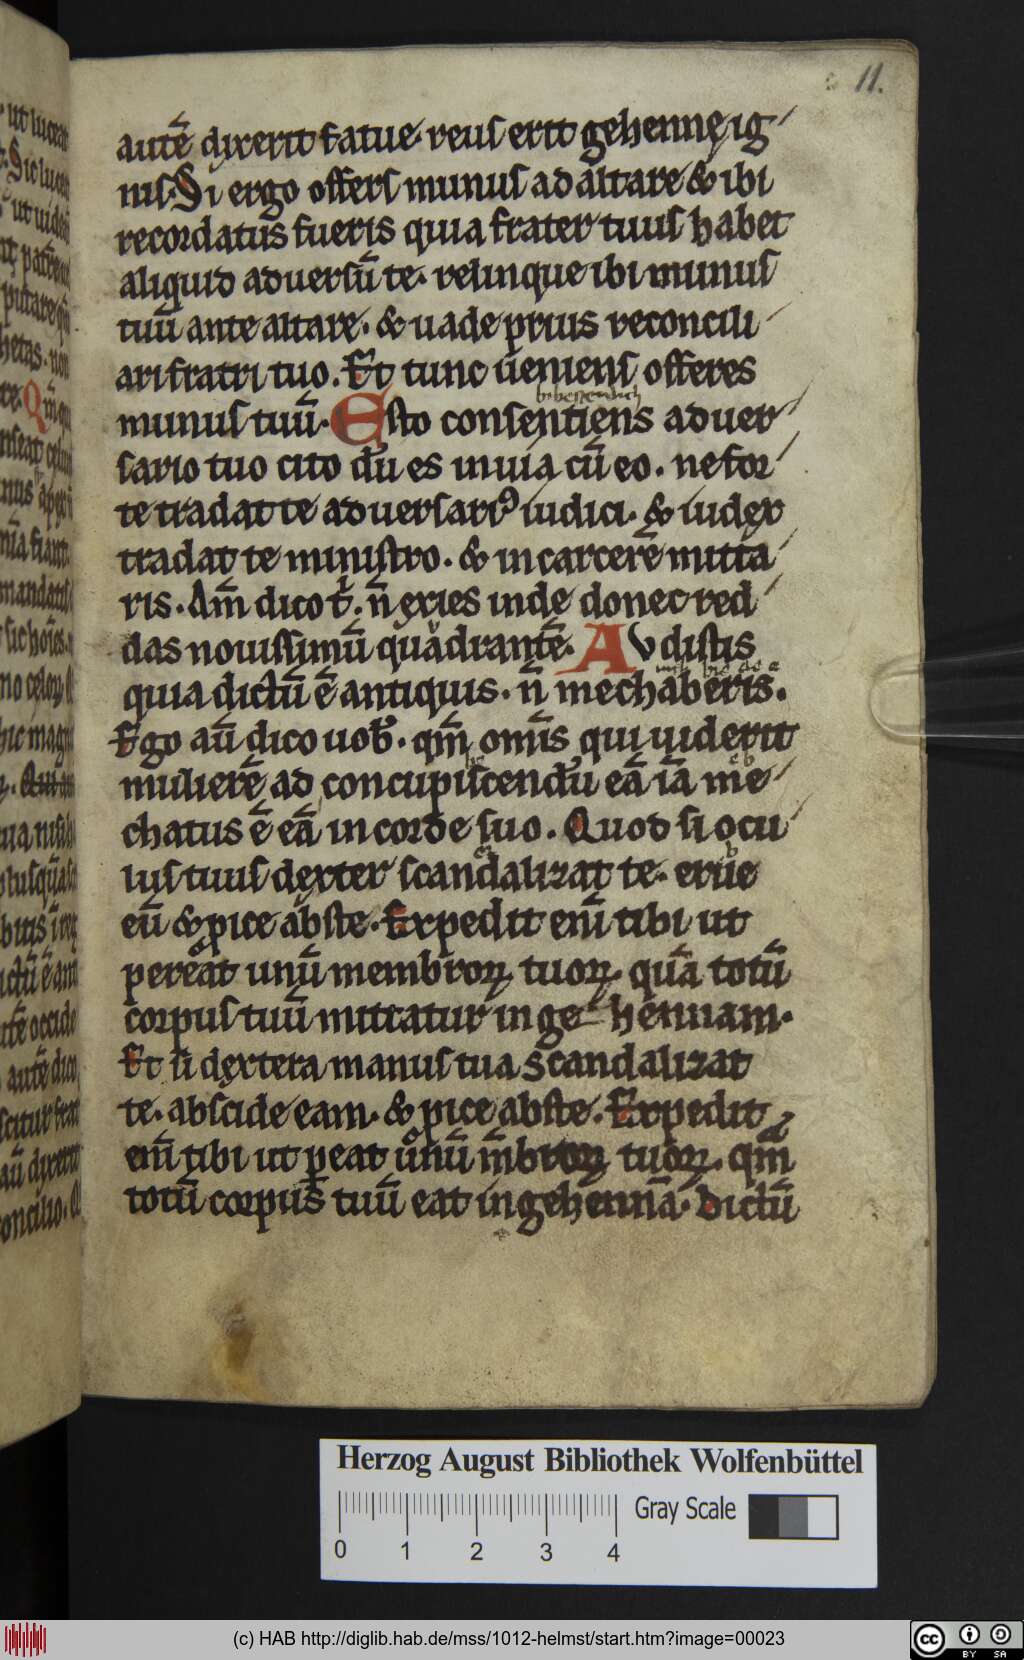 11.
autē dixerit fatue. reus erit gehennę ig
nis. Si ergo offers munus ad altare & ibi
recordatus fueris quia frater tuus habet
aliquid aduersū te. relinque ibi munus
tuū ante altare. & uade prius reconcili
ari fratri tuo. Et tunc ueniens offeres
munus tuū. Esto consentiens aduer
sario tuo cito dū es in uia cū eo. ne for
te tradat te aduersariꝰ iudici. & iudex
tradat te ministro. & in carcerē mitta
ris. Am̄ dico t̄. n̄ exies inde donec red
das nouissimū quadrantē. AVdistis
quia dictū ē antiquis. n̄ mechaberis.
Ego aū dico uob̄. qm̄ om̄is qui uiderit
mulierē ad concupiscendū eā iā me
chatus ē eā in corde suo. Quod si ocu
lus tuus dexter scandalizat te. erue
eū & ꝓice abste. Expedit em̄ tibi ut
pereat unū membrorꝝ tuorꝝ quā totū
corpus tuū mittatur in gehennam.
Et si dextera manus tua scandalizat
te. abscide eam. & ꝓice abste. Expedit
em̄ tibi ut ꝑeat unū m̄brorꝝ tuorꝝ. qm̄
totū corpus tuū eat in gehennā. Dictū
Herzog August Bibliothek Wolfenbüttel
Gray Scale
0 1 2 3 4
(c) HAB http://diglib.hab.de/mss/1012-helmst/start.htm?image=00023
cc BY SA